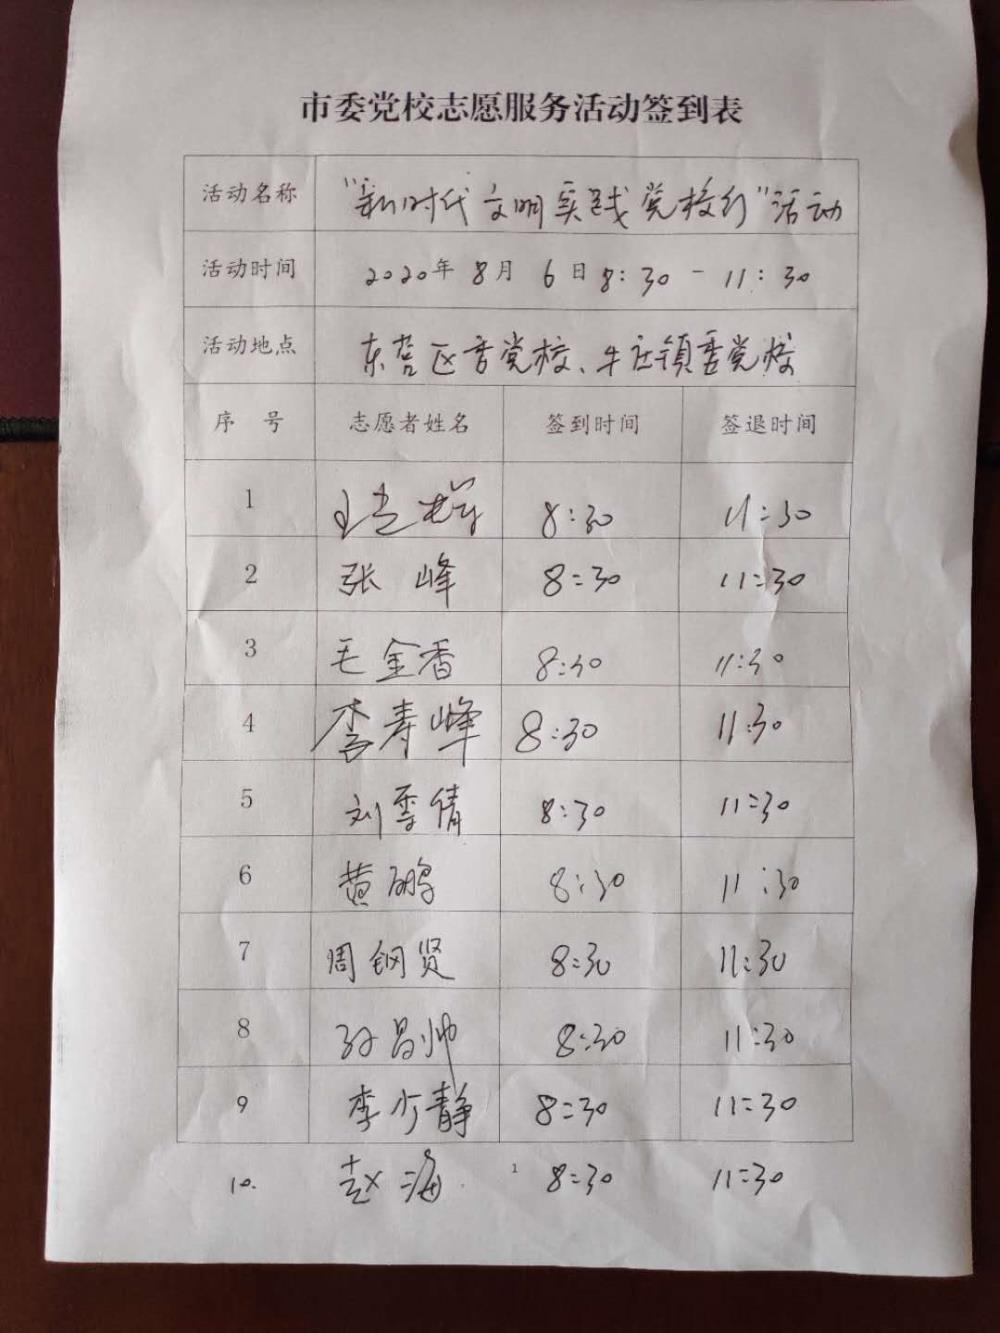 市委党校志愿服务活动签到表
活动名称 "新时代文明实践党校行"活动
活动时间 2020年 8月 6日 8:30 - 11:30
活动地点 东营区委党校、牛庄镇委党校
序 号 志愿者姓名 签到时间 签退时间
1 8:30 11:30
2 张峰 8:30 11:30
3 毛金香 8:30 11:30
4 李寿峰 8:30 11:30
5 刘季倩 8:30 11:30
6 黄鹏 8:30 11:30
7 周钢贤 8:30 11:30
8 孙昌帅 8:30 11:30
9 李少静 8:30 11:30
10. 赵海 8:30 11:30
1